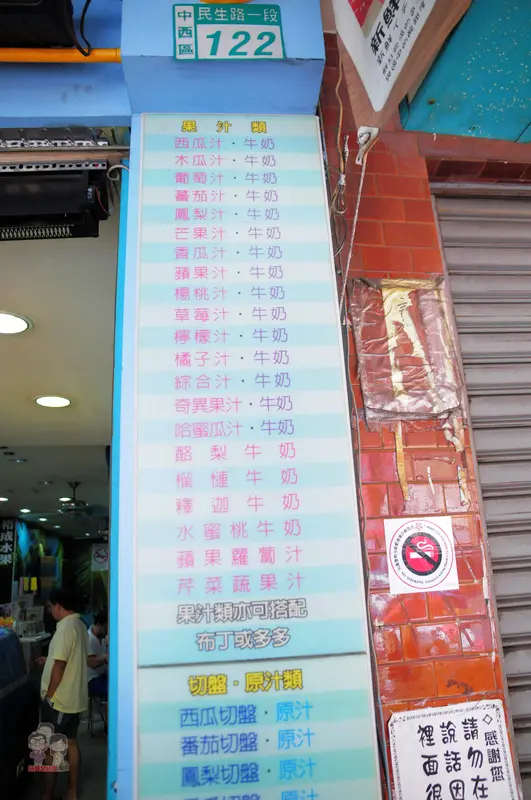 中西區
民生路一段
122
新鮮
果汁類
西瓜汁・牛奶
木瓜汁・牛奶
葡萄汁・牛奶
蕃茄汁・牛奶
鳳梨汁・牛奶
芒果汁・牛奶
香瓜汁・牛奶
蘋果汁・牛奶
楊桃汁・牛奶
草莓汁・牛奶
檸檬汁・牛奶
橘子汁・牛奶
綜合汁・牛奶
奇異果汁・牛奶
哈蜜瓜汁・牛奶
酪梨牛奶
榴槤牛奶
釋迦牛奶
水蜜桃牛奶
蘋果蘿蔔汁
芹菜蔬果汁
果汁類亦可搭配
布丁或多多
切盤・原汁類
西瓜切盤・原汁
番茄切盤・原汁
鳳梨切盤・原汁
裕成水果
感謝您
請勿在
說話因
裡面很